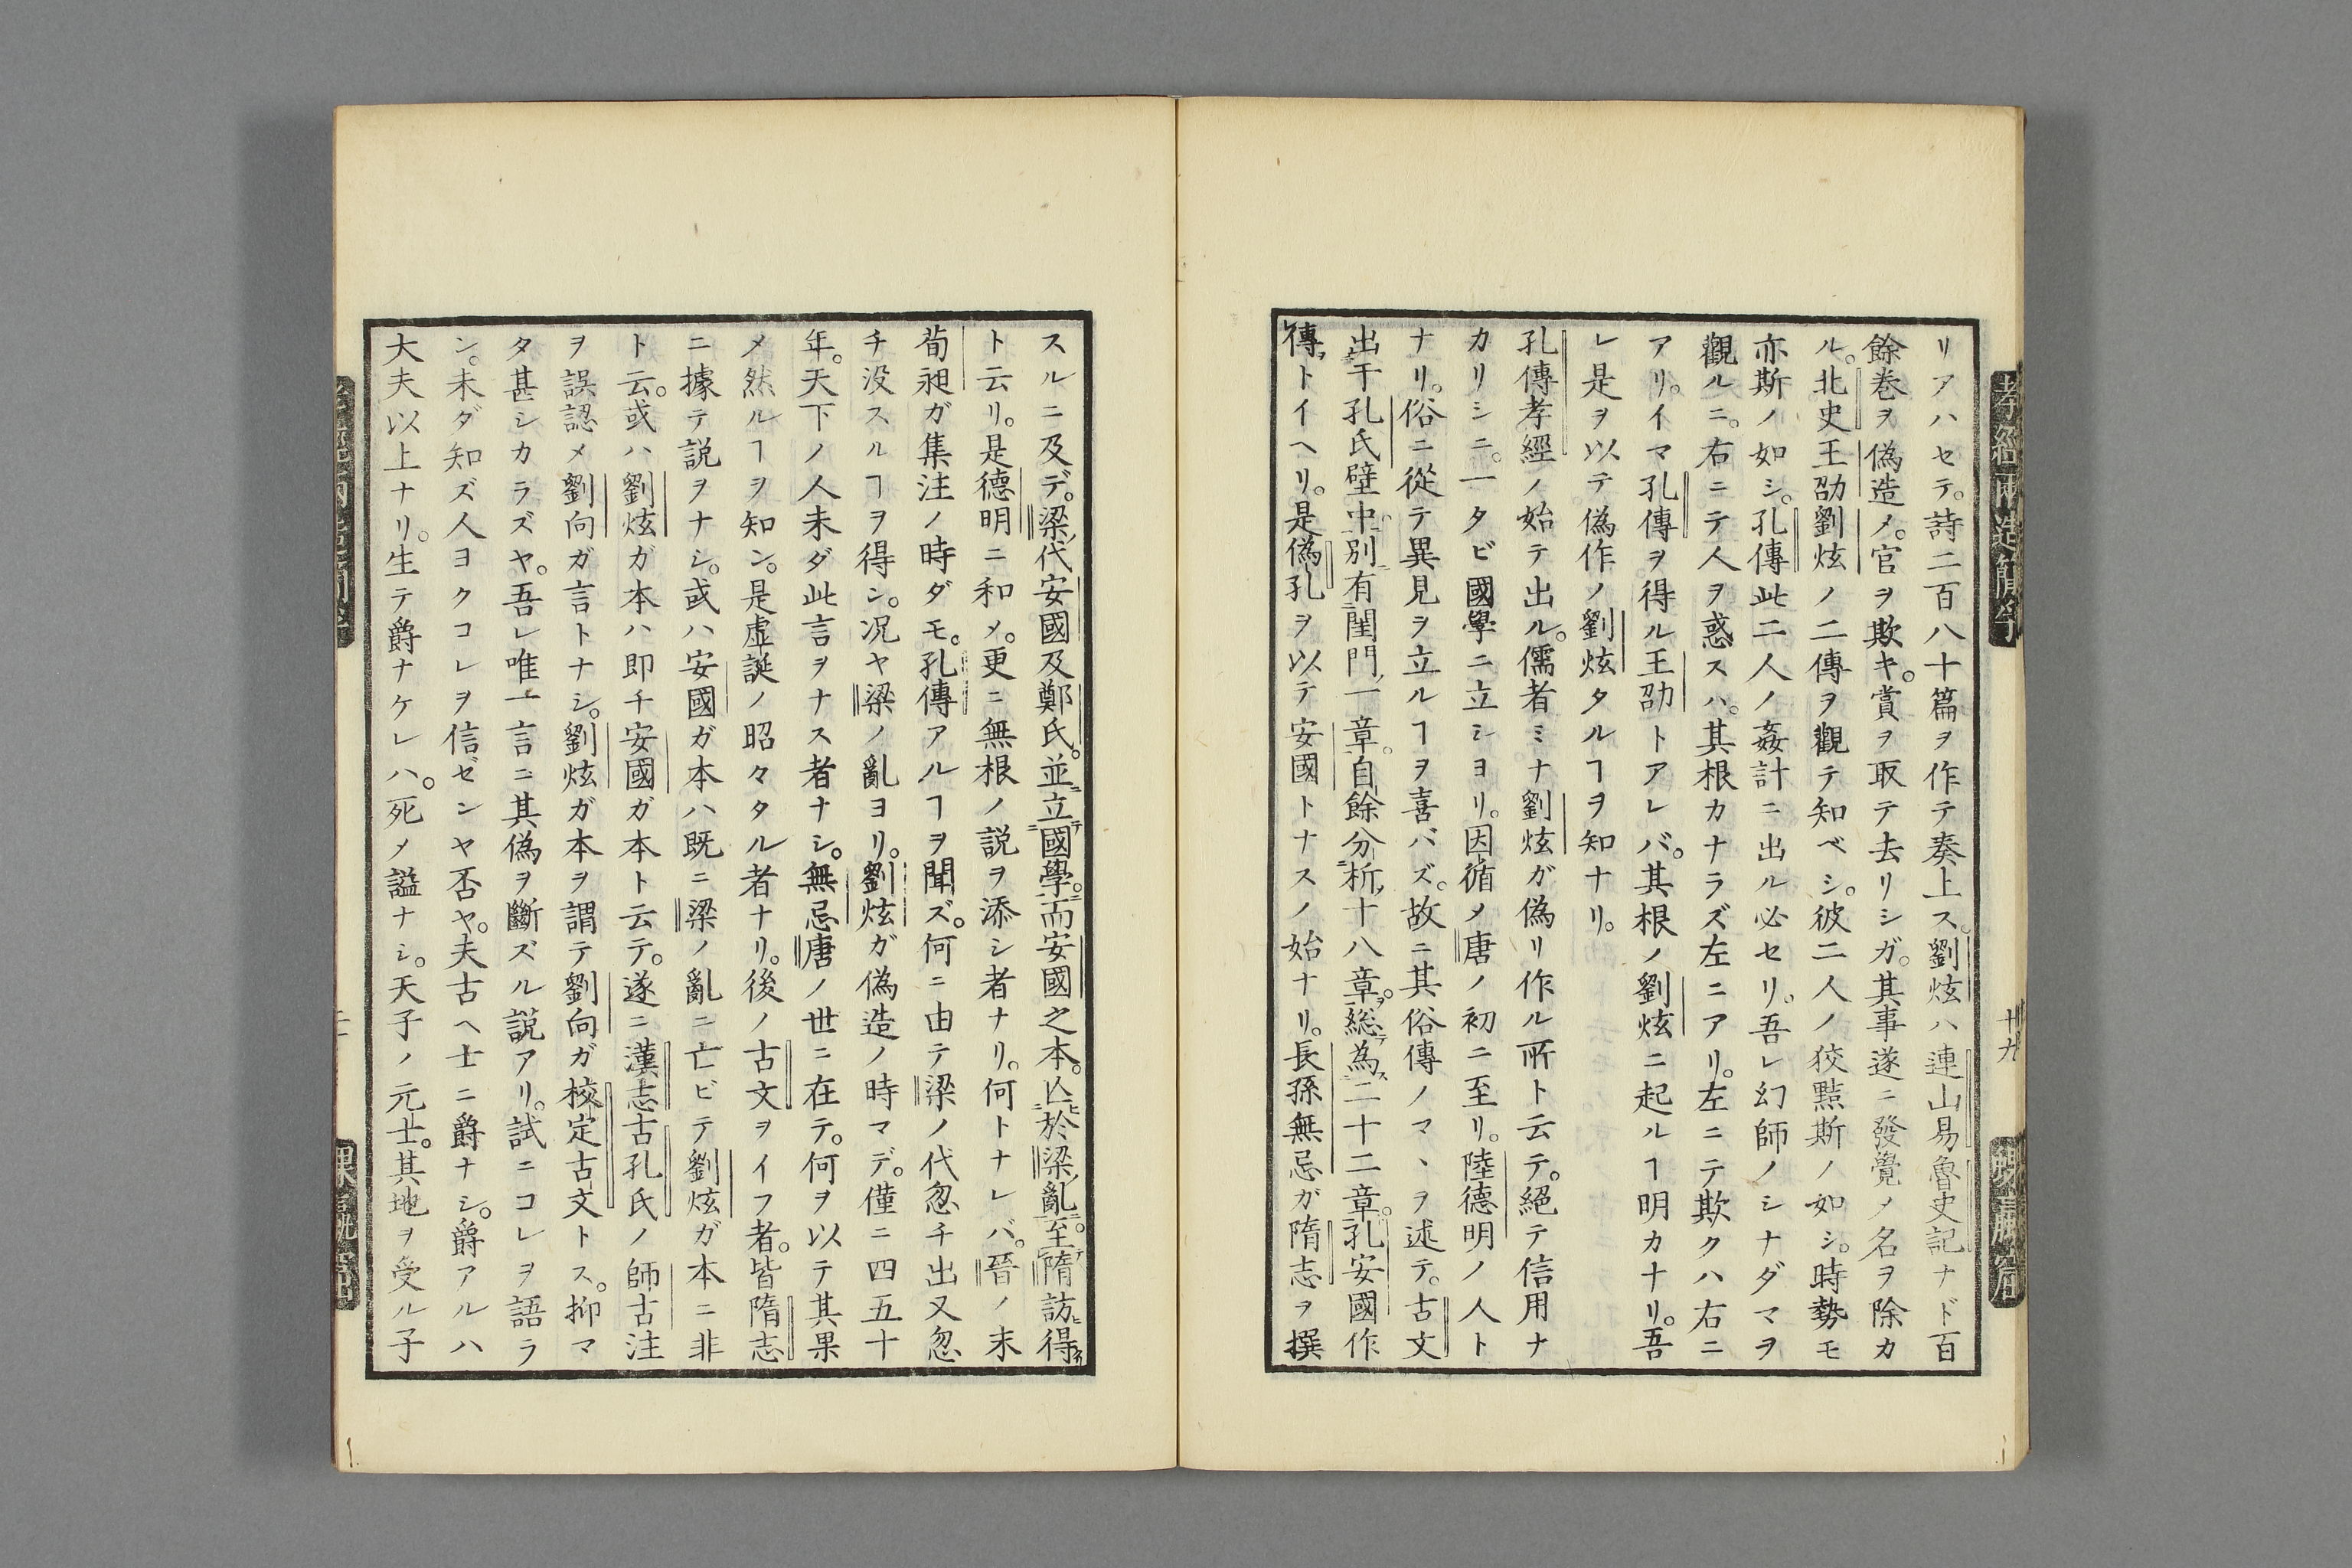 リアハセテ。詩二百八十篇ヲ作テ奏上ス。劉炫ハ連山易魯史記ナド百
餘巻ヲ偽造メ。官ヲ欺キ。賞ヲ取テ去リシガ。其事遂ニ發覺メ名ヲ除カ
ル。北史王劭劉炫ノ二傳ヲ觀テ知ベシ。彼二人ノ狡黠斯ノ如シ。時勢モ
亦斯ノ如シ。孔傳此二人ノ姦計ニ出ル必セリ。吾レ幻師ノシナダマヲ
觀ルニ。右ニテ人ヲ惑スハ。其根カナラズ左ニアリ。左ニテ欺クハ右ニ
アリ。イマ孔傳ヲ得ル王劭トアレバ。其根ノ劉炫ニ起ルヿ明カナリ。吾
レ是ヲ以テ偽作ノ劉炫タルヿヲ知ナリ。
孔傳孝經ノ始テ出ル。儒者ミナ劉炫ガ偽リ作ル所ト云テ。絕テ信用ナ
カリシニ。一タビ國學ニ立シヨリ。因循メ唐ノ初ニ至リ。陸德明ノ人ト
ナリ。俗ニ從テ異見ヲ立ルヿヲ喜バズ。故ニ其俗傳ノマヽヲ述テ。古文
出于孔氏壁中別有閨門一章。自餘分析十八章。総為二十二章。孔安國作
傳トイヘリ。是偽孔ヲ以テ安國トナスノ始ナリ。長孫無忌ガ隋志ヲ撰
スルニ及デ。梁代安國及鄭氏。並立國學。而安國之本。亾於梁亂。至隋訪得
ト云リ。是德明ニ和メ。更ニ無根ノ說ヲ添シ者ナリ。何トナレバ。晉ノ末
荀昶ガ集注ノ時ダモ。孔傳アルヿヲ聞ズ。何ニ由テ梁ノ代忽チ出又忽
チ没スルヿヲ得ン。况ヤ梁ノ亂ヨリ。劉炫ガ偽造ノ時マデ。僅ニ四五十
年。天下ノ人未ダ此言ヲナス者ナシ。無忌唐ノ世ニ在テ。何ヲ以テ其果
メ然ルヿヲ知ン。是虛誕ノ昭々タル者ナリ。後ノ古文ヲイフ者。皆隋志
ニ據テ說ヲナシ。或ハ安國ガ本ハ既ニ梁ノ亂ニ亡ビテ劉炫ガ本ニ非
ト云。或ハ劉炫ガ本ハ即チ安國ガ本ト云テ。遂ニ漢志古孔氏ノ師古注
ヲ誤認メ劉向ガ言トナシ。劉炫ガ本ヲ謂テ劉向ガ校定古文トス。抑マ
タ甚シカラズヤ。吾レ唯一言ニ其偽ヲ斷ズル說アリ。試ニコレヲ語ラ
ン。未ダ知ズ人ヨクコレヲ信ゼンヤ否ヤ。夫古ヘ士ニ爵ナシ。爵アルハ
大夫以上ナリ。生テ爵ナケレハ。死メ謚ナシ。天子ノ元士。其地ヲ受ル子